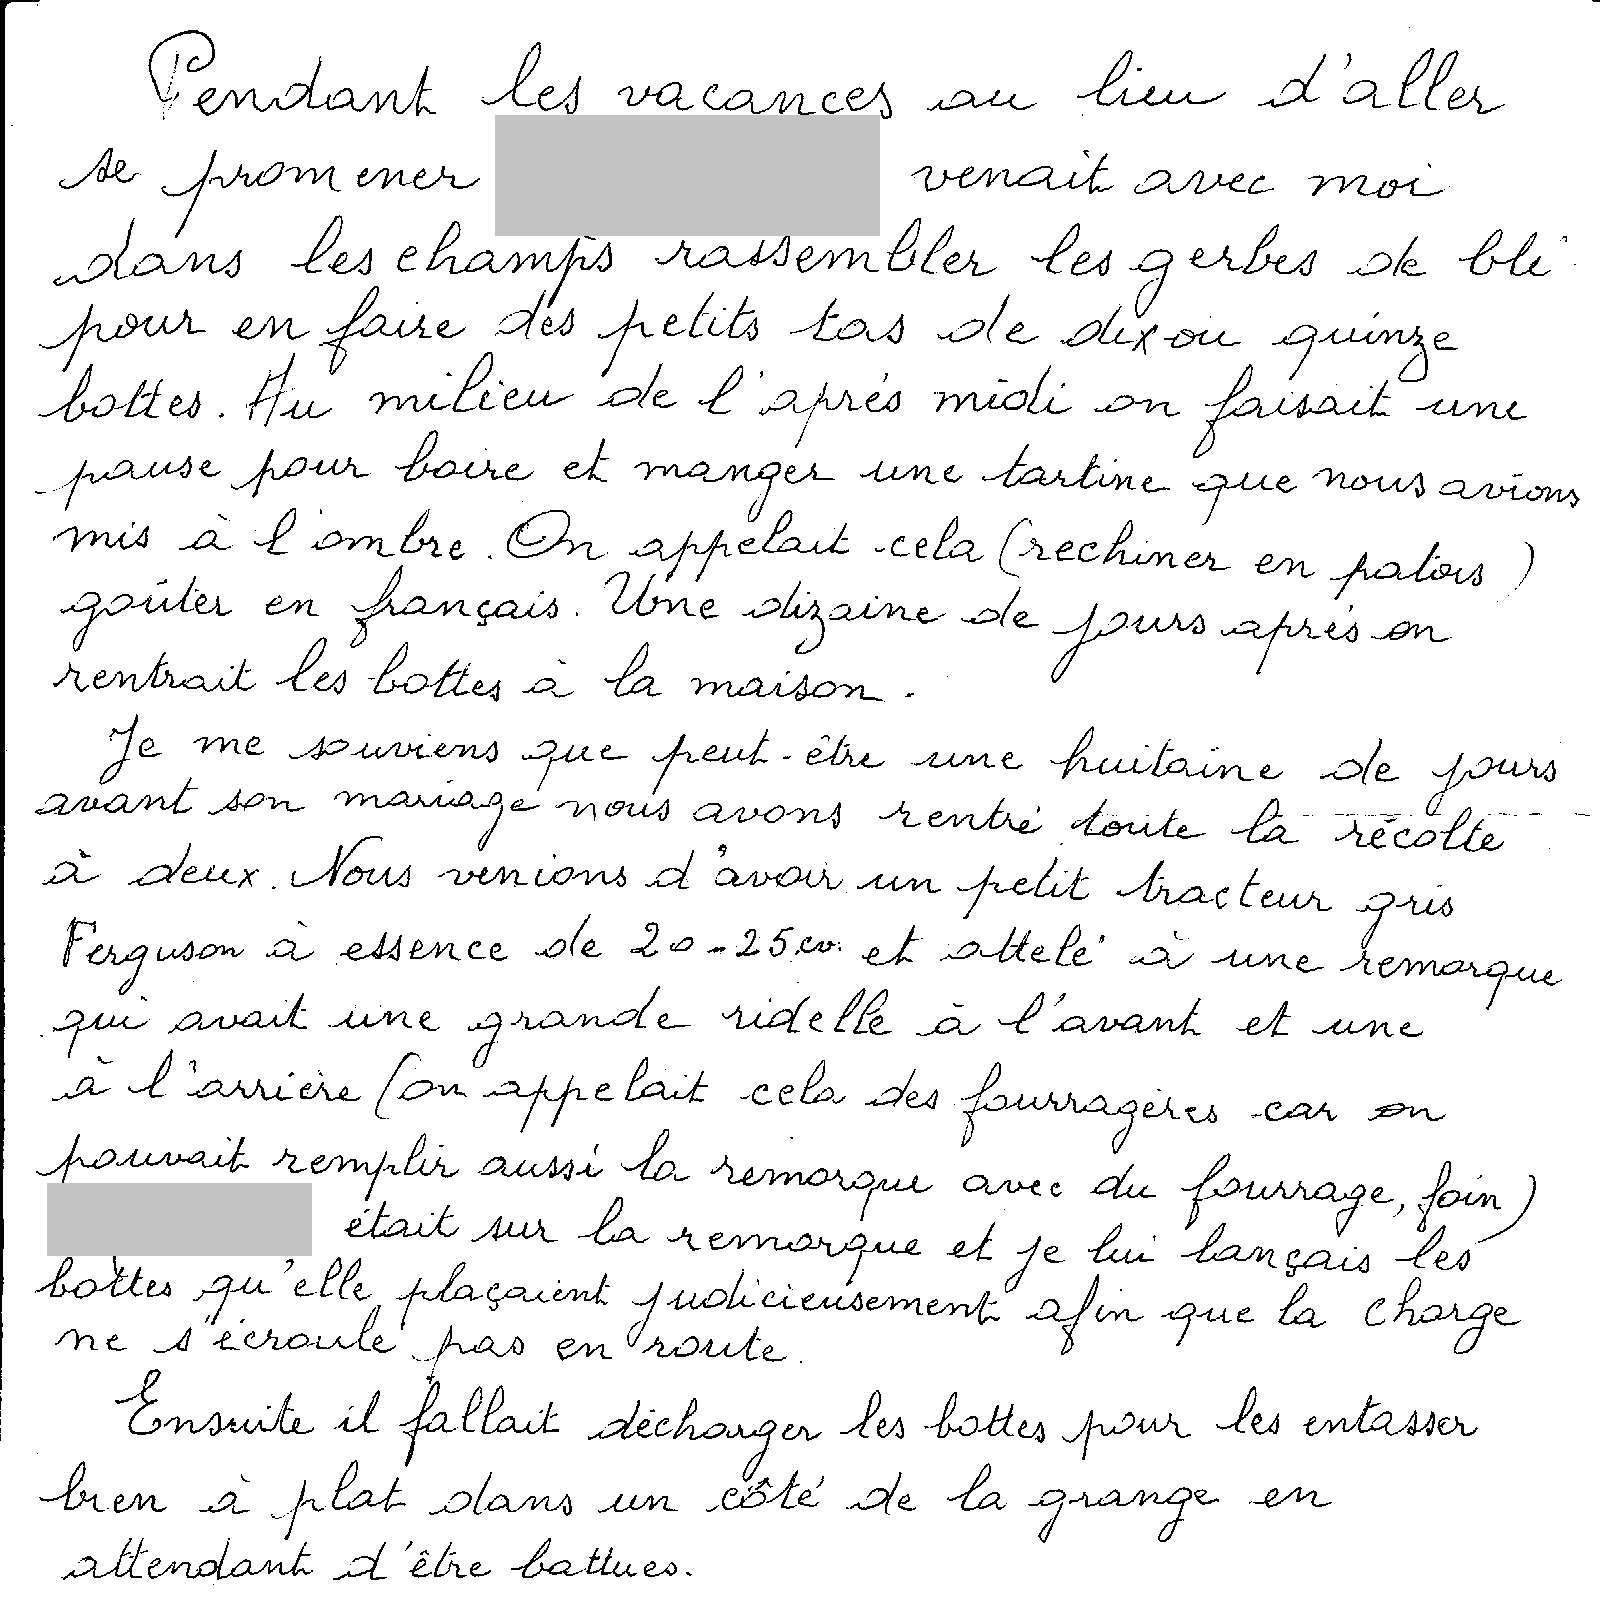 Pendant les vacances au lieu d'aller
se promener venait avec moi
dans les champs rassembler les gerbes de blé
pour en faire des petits tas de dix ou quinze
bottes. Au milieu de l'après midi on faisait une
pause pour boire et manger une tartine que nous avions
mis à l'ombre. On appelait cela (rechiner en patois)
goûter en français. Une dizaine de jours après on
rentrait les bottes à la maison.
Je me souviens que peut-être une huitaine de jours
avant son mariage nous avons rentré toute la récolte
à deux. Nous venions d'avoir un petit tracteur gris
Ferguson à essence de 20-25 cv. et attelé à une remorque
qui avait une grande ridelle à l'avant et une
à l'arrière (on appelait cela des fourragères car on
pouvait remplir aussi la remorque avec du fourrage, foin)
était sur la remorque et je lui lançais les
bottes qu'elle plaçaient judicieusement afin que la charge
ne s'écroule pas en route.
Ensuite il fallait décharger les bottes pour les entasser
bien à plat dans un côté de la grange en
attendant d'être battues.